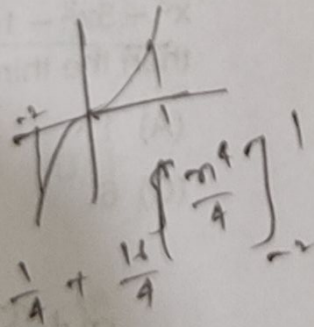 -2
1
[x⁴/4]₋₂¹
1/4 + 16/4